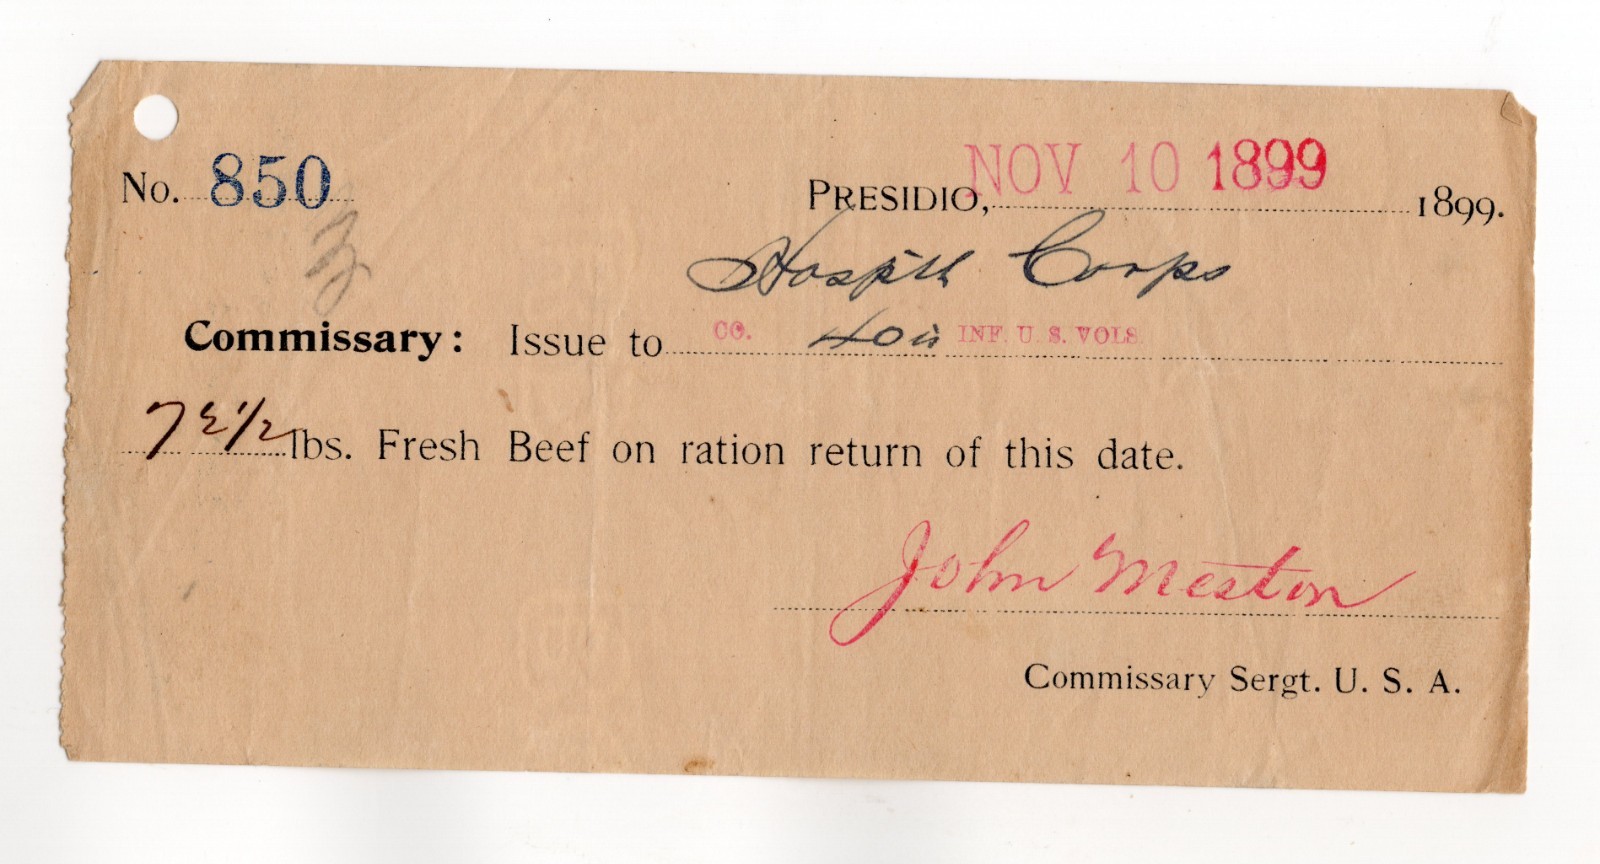 No. 850
PRESIDIO, NOV 10 1899 1899.
Hospital Corps
Commissary: Issue to CO. 40th INF. U. S. VOLS.
72 1/2 lbs. Fresh Beef on ration return of this date.
John Meston
Commissary Sergt. U. S. A.